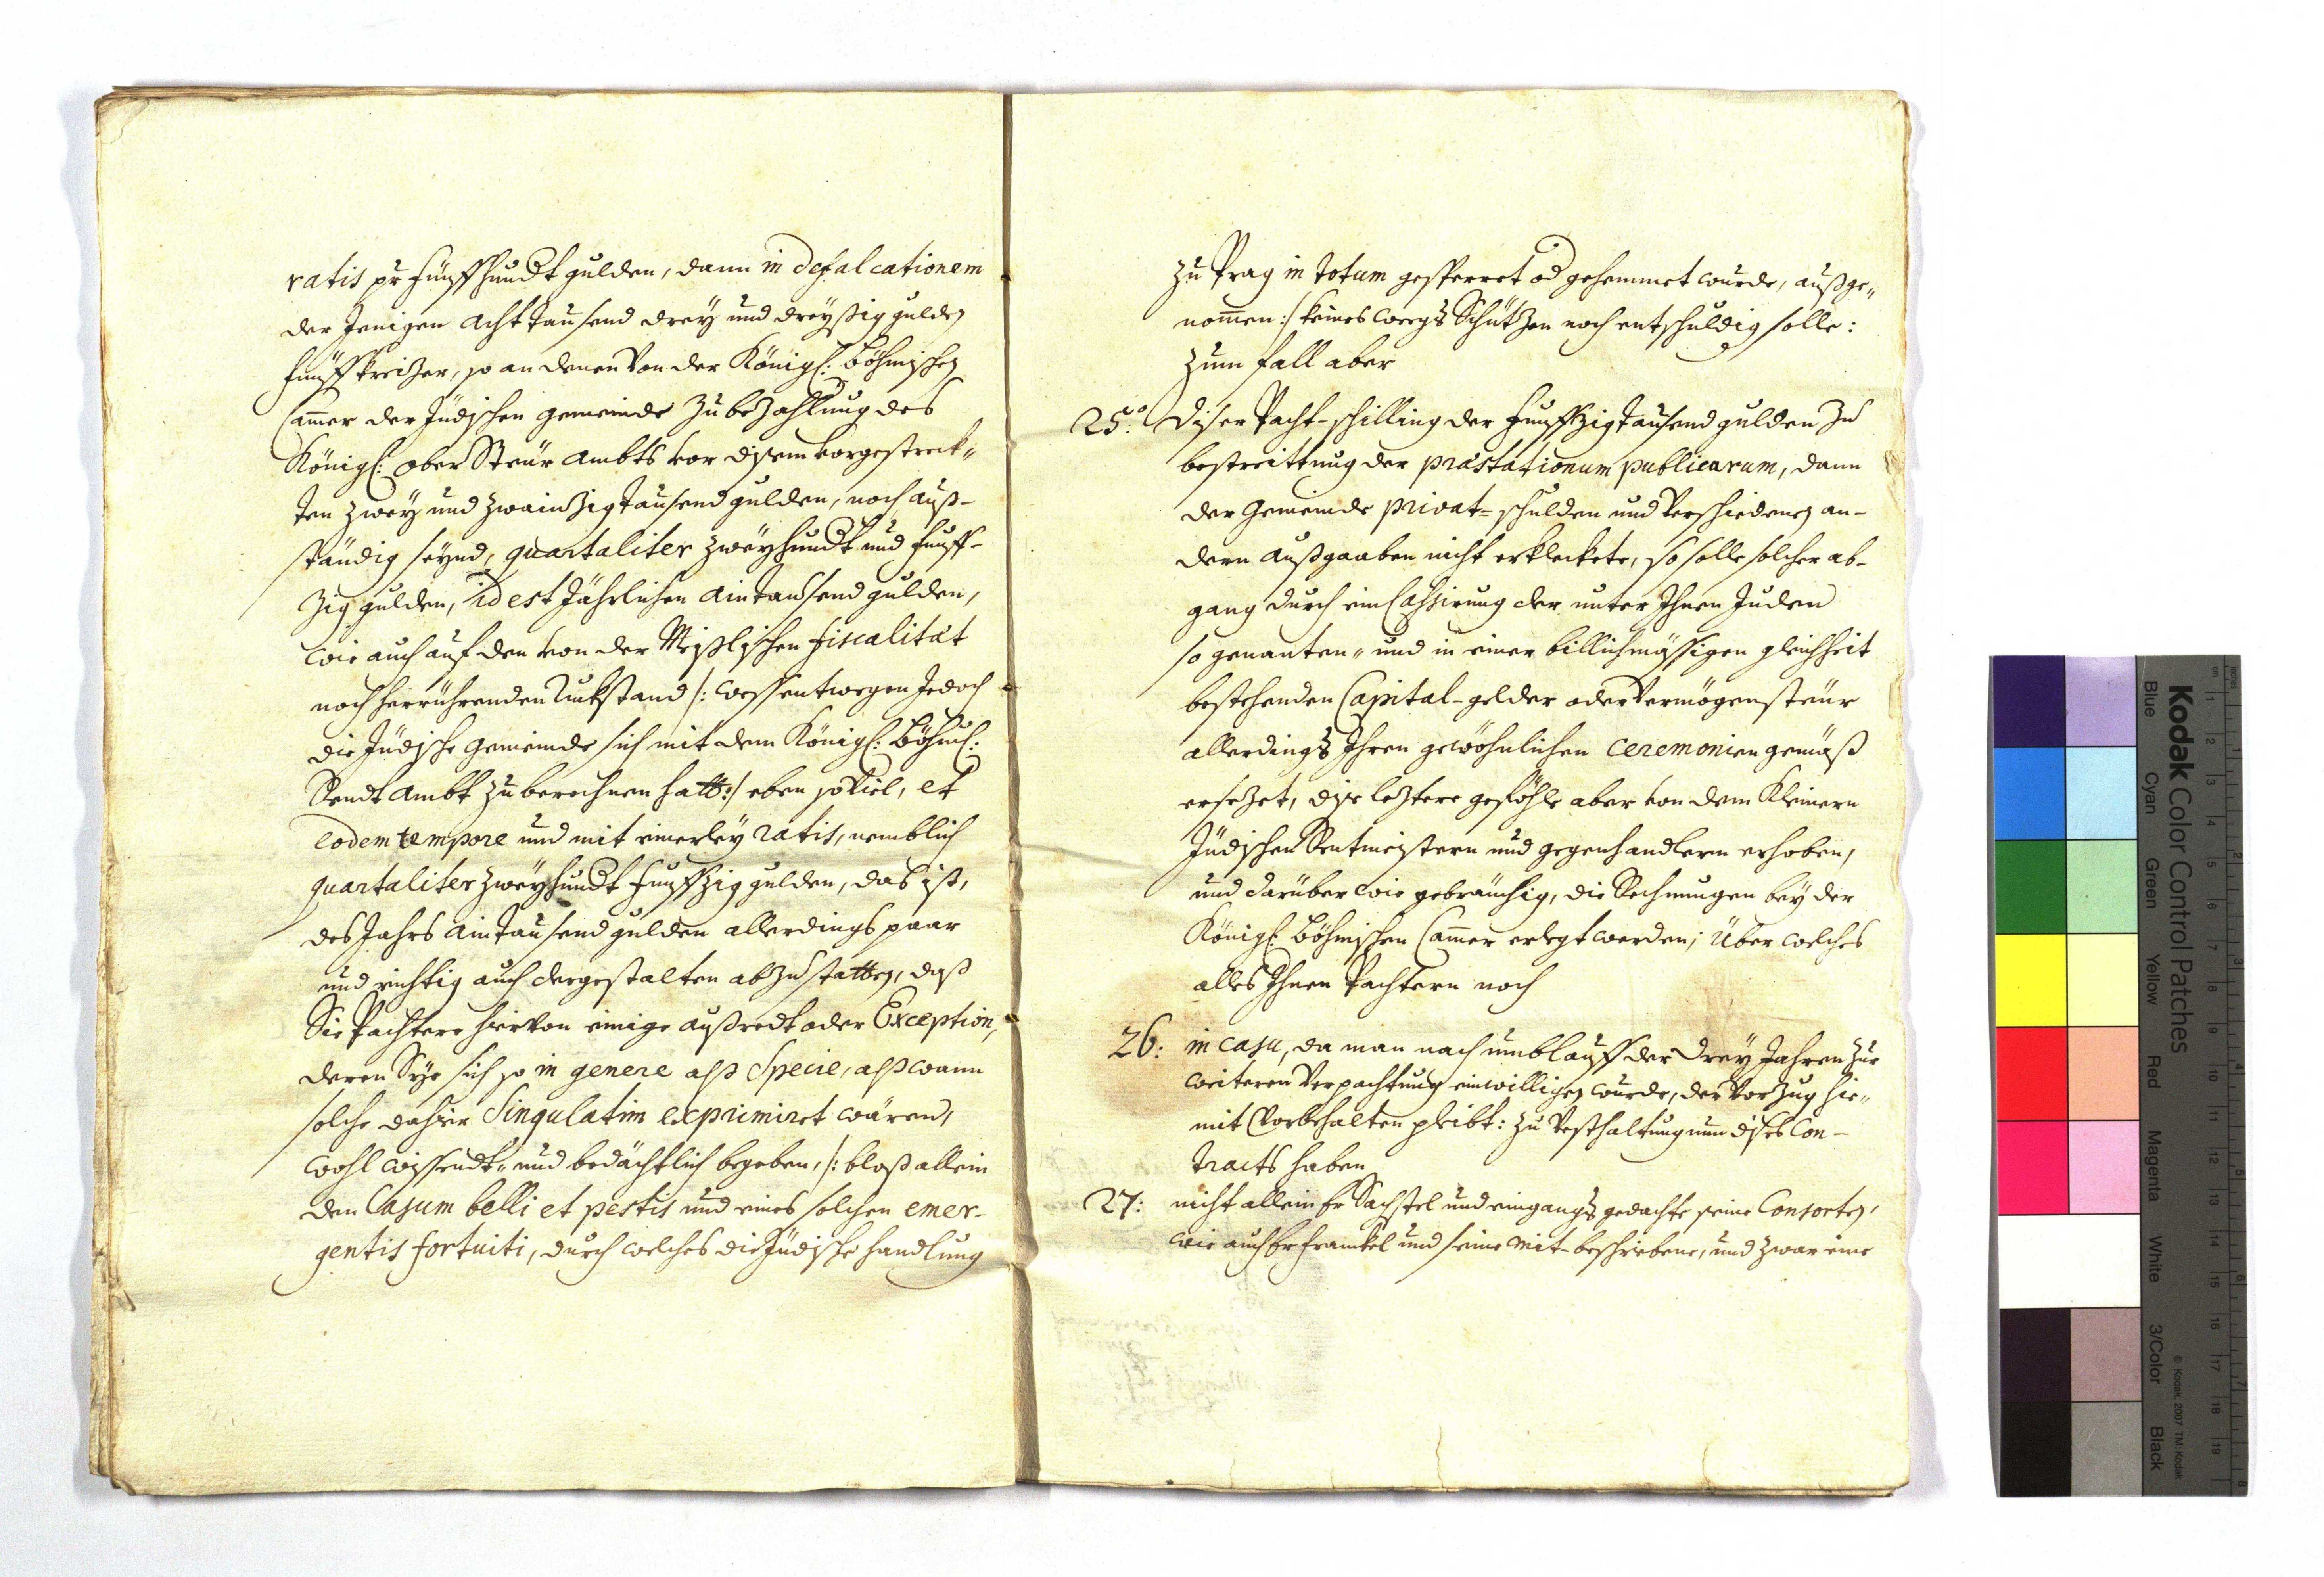 ratis pr fünffhundt gulden, dann in defalcationem
der Jenigen Acht tausend drey und dreyßig gulden
fünff kreizer, so an denen von der Königl: Böhmischen
Cam̄er der Jüdischen gemeinde zu bezahlung des
Königl: Ober Steür Ambts vor disem vorgestreck„
ten zwey und zwainzig tausend gulden, noch auß-
ständig seynd, quartaliter zweyhundt und funff-
zig gulden, id est Jährlichen Aintausend gulden,
wie auch auf den von der Meißlischen fiscalität
noch herrührenden Rukstand /: wessentwegen Jedoch
die Jüdische gemeinde sich mit dem Königl: Böhml:
Rendt Ambt zu berechnen hatt :/ eben so viel, et
eodem tempore und mit einerley ratis, nemblich
quartaliter zweyhundt funffzig gulden, das ist,
des Jahrs Aintausend gulden allerdings paar
und richtig auch dergestalten abzustatten, daß
Sie Pachtere hiervon einige außredt oder Exception,
deren Sye sich so in genere alß Specie, alß wann
solche dahier Singulatim exprimiret wären,
wohl wissendt„ und bedächtlich begeben, /: bloß allein
den Casum belli et pestis und eines solchen emer-
gentis fortuiti, durch welches die Jüdische handlung
zu Prag in totum gesperret od gehemmet wurde, außge„
nom̄en :/ keines weegs Schützen noch entschuldig solle:
zum fall aber
25.o diser Pacht-schilling der funffzig tausend gulden zu
bestreittung der præstationum publicarum, dann
der Gemeinde privat= schulden und verschiedenen an-
dern Außgaaben nicht erkleckete, so solle solcher ab-
gang durch ein Cassirung der unter Ihnen Juden
so genanten„ und in einer billichmässigen gleichheit
bestehenden Capital-gelder oder Vermögensteür
allerdings Ihren gewöhnlichen ceremonien gemäß
ersezet, dise leztere gefühle aber von dem Kleinern
Jüdischen Rentmeistern und gegenhandlern erhoben,
und darüber wie gebräuchig, die Rechnungen bey der
Königl: Böhmischen Cam̄er erlegt werden; Über welches
alles Ihnen Pachtern noch
26: in casu, da man nach umblauff der drey Jahren zur
weiteren Verpachtung einwilligen wurde, der Vorzug hie„
mit Vorbehalten pleibt: zu Vesthaltung nun dises Con-
tracts haben
27: nicht allein Er Sachsel und eingangs gedachte seine Consorten,
wie auch Er Frankel und seine mit-beschriebene, und zwar eine